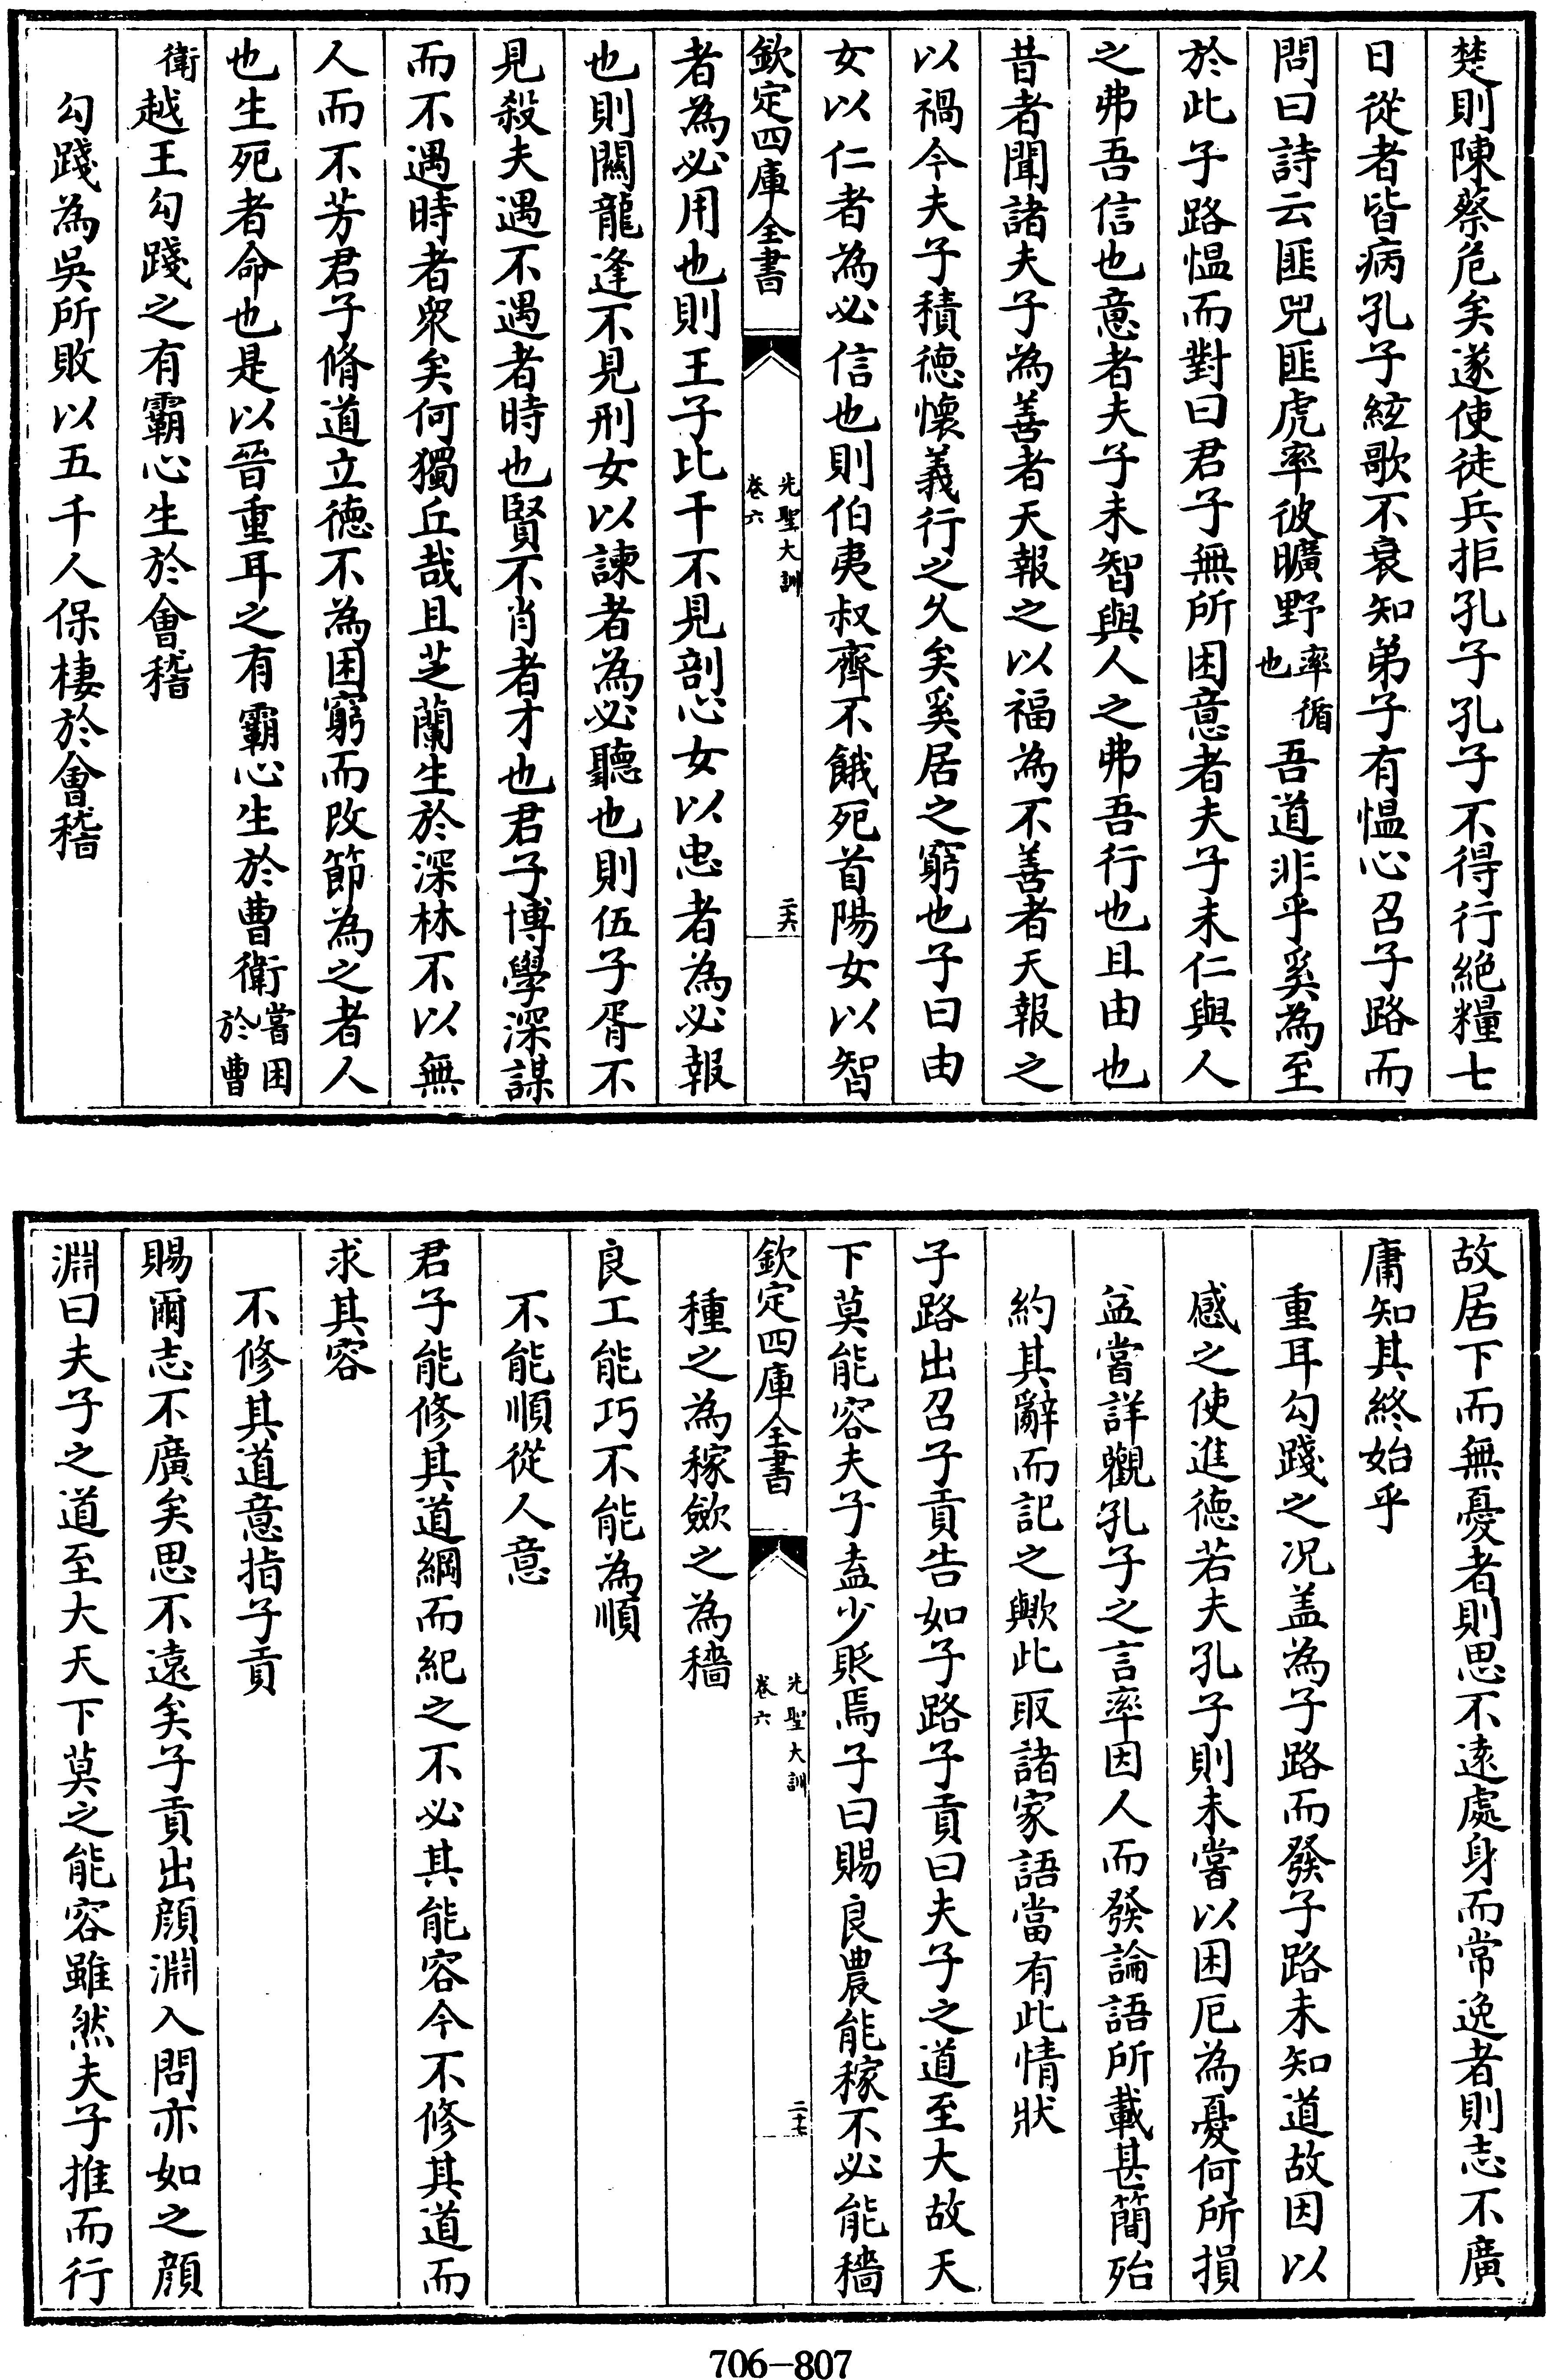 楚則陳蔡危矣遂使徒兵拒孔子孔子不得行絶糧七
日從者皆病孔子絃歌不衰知弟子有愠心召子路而
問曰詩云匪兕匪虎率彼曠野率循也吾道非乎奚為至
於此子路愠而對曰君子無所困意者夫子未仁與人
之弗吾信也意者夫子未智與人之弗吾行也且由也
昔者聞諸夫子為善者天報之以福為不善者天報之
以禍今夫子積德懷義行之久矣奚居之窮也子曰由
女以仁者為必信也則伯夷叔齊不餓死首陽女以智
欽定四庫全書
先聖大訓
卷六
二六
者為必用也則王子比干不見剖心女以忠者為必報
也則關龍逢不見刑女以諫者為必聽也則伍子胥不
見殺夫遇不遇者時也賢不肖者才也君子博學深謀
而不遇時者衆矣何獨丘哉且芝蘭生於深林不以無
人而不芳君子脩道立德不為困窮而改節為之者人
也生死者命也是以晉重耳之有霸心生於曹衛嘗困於曹
衛越王勾踐之有霸心生於會稽
勾踐為吳所敗以五千人保棲於會稽
故居下而無憂者則思不遠處身而常逸者則志不廣
庸知其終始乎
重耳勾踐之况盖為子路而發子路未知道故因以
感之使進德若夫孔子則未嘗以困厄為憂何所損
益嘗詳觀孔子之言率因人而發論語所載甚簡殆
約其辭而記之歟此取諸家語當有此情狀
子路出召子貢告如子路子貢曰夫子之道至大故天
下莫能容夫子盍少貶焉子曰賜良農能稼不必能穡
欽定四庫全書
先聖大訓
卷六
二十七
種之為稼斂之為穡
良工能巧不能為順
不能順從人意
君子能修其道綱而紀之不必其能容今不修其道而
求其容
不修其道意指子貢
賜爾志不廣矣思不遠矣子貢出顔淵入問亦如之顔
淵曰夫子之道至大天下莫之能容雖然夫子推而行
706-807